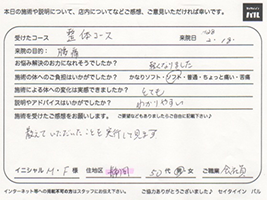 本日の施術や説明について、店内についてなどご感想、ご意見いただければ幸いです。
受けたコース 整体コース 来院日 2.13.
来院の目的: 腰痛
お悩み解決のお力になれそうでしたか? 
施術の体へのご負担はいかがでしたか? かなりソフト・ソフト・普通・ちょっと痛い・苦痛
施術による体への変化は実感できましたか? とても
説明やアドバイスはいかがでしたか? わかりやすい
施術を受けたご感想をお願いします。
教えていただいたことを実行して見ます
イニシャル M・F 様 住地区 静岡 50代 男 女 ご職業 会社員
インターネット等への掲載不可の方はスタッフにお伝え下さい。 ご協力ありがとうございました♪ セイタイイン バル